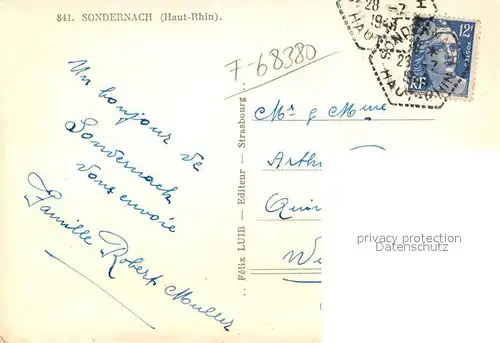 841. SONDERNACH (Haut-Rhin).
F-68380
Un bonjour de
Sondernach
vous envoie
Famille Robert Muller
Félix LUIB — Editeur — Strasbourg
28
12F
POSTES
RF
Mr & Mme
Arth
Quin
We
privacy protection
Datenschutz